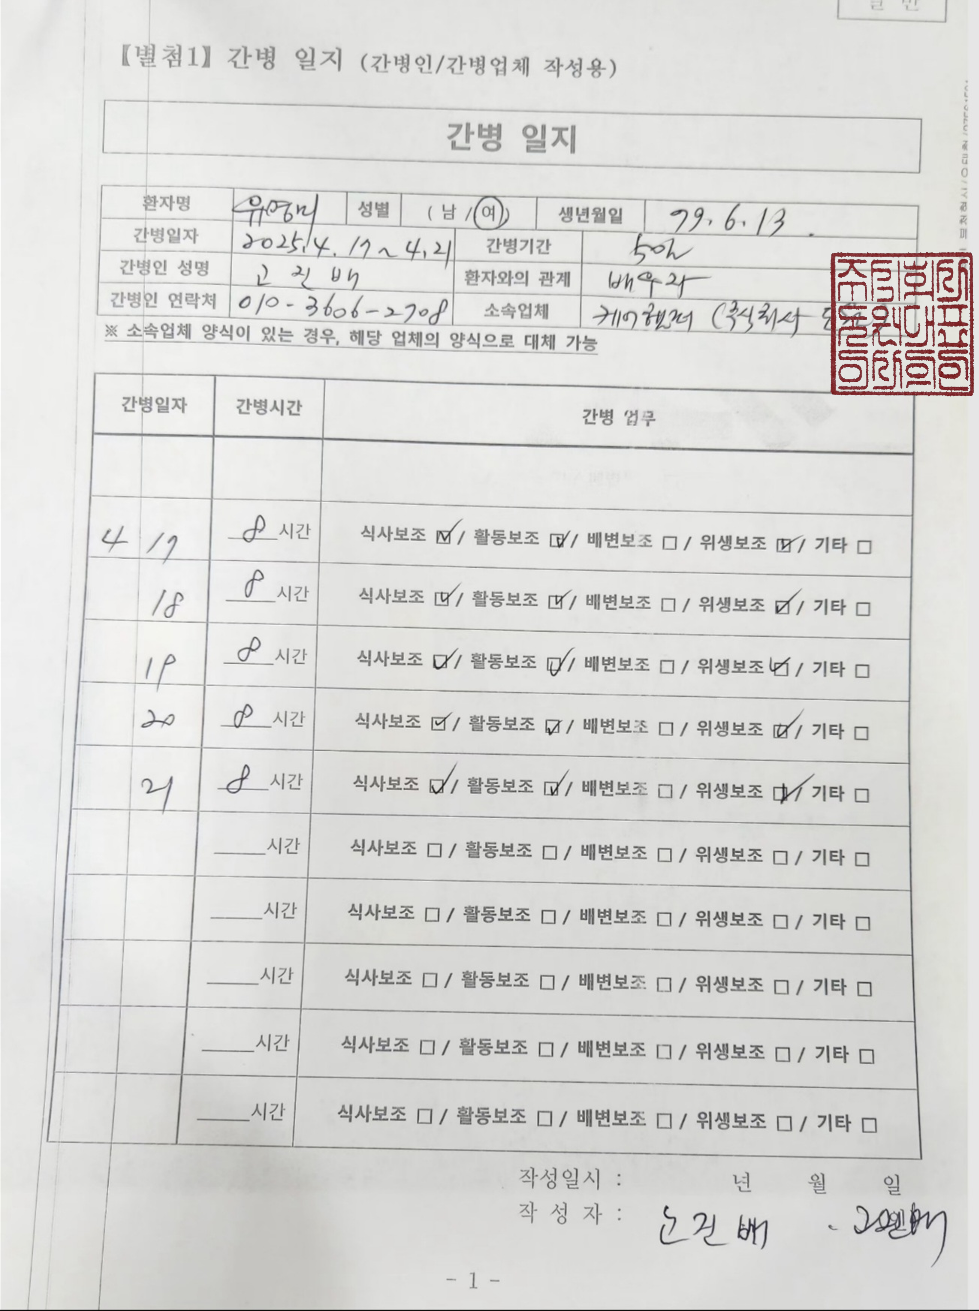 일 반
【별첨1】 간병 일지 (간병인/간병업체 작성용)
간병 일지
환자명 유영미 성별 (남/여) 생년월일 79. 6. 13.
간병일자 2025.4. 17 ~ 4.21 간병기간 5일
간병인 성명 고진배 환자와의 관계 배우자
간병인 연락처 010-3606-2708 소속업체 케어 (주식회사
※ 소속업체 양식이 있는 경우, 해당 업체의 양식으로 대체 가능
간병일자 간병시간 간병 업무
4 17 8 시간 식사보조 ☑ / 활동보조 ☑ / 배변보조 □ / 위생보조 ☑ / 기타 □
18 8 시간 식사보조 ☑ / 활동보조 ☑ / 배변보조 □ / 위생보조 ☑ / 기타 □
19 8 시간 식사보조 ☑ / 활동보조 ☑ / 배변보조 □ / 위생보조 ☑ / 기타 □
20 8 시간 식사보조 ☑ / 활동보조 ☑ / 배변보조 □ / 위생보조 ☑ / 기타 □
21 8 시간 식사보조 ☑ / 활동보조 ☑ / 배변보조 □ / 위생보조 ☑ / 기타 □
____시간 식사보조 □ / 활동보조 □ / 배변보조 □ / 위생보조 □ / 기타 □
____시간 식사보조 □ / 활동보조 □ / 배변보조 □ / 위생보조 □ / 기타 □
____시간 식사보조 □ / 활동보조 □ / 배변보조 □ / 위생보조 □ / 기타 □
____시간 식사보조 □ / 활동보조 □ / 배변보조 □ / 위생보조 □ / 기타 □
____시간 식사보조 □ / 활동보조 □ / 배변보조 □ / 위생보조 □ / 기타 □
작성일시 : 년 월 일
작 성 자 : 고진배
- 1 -